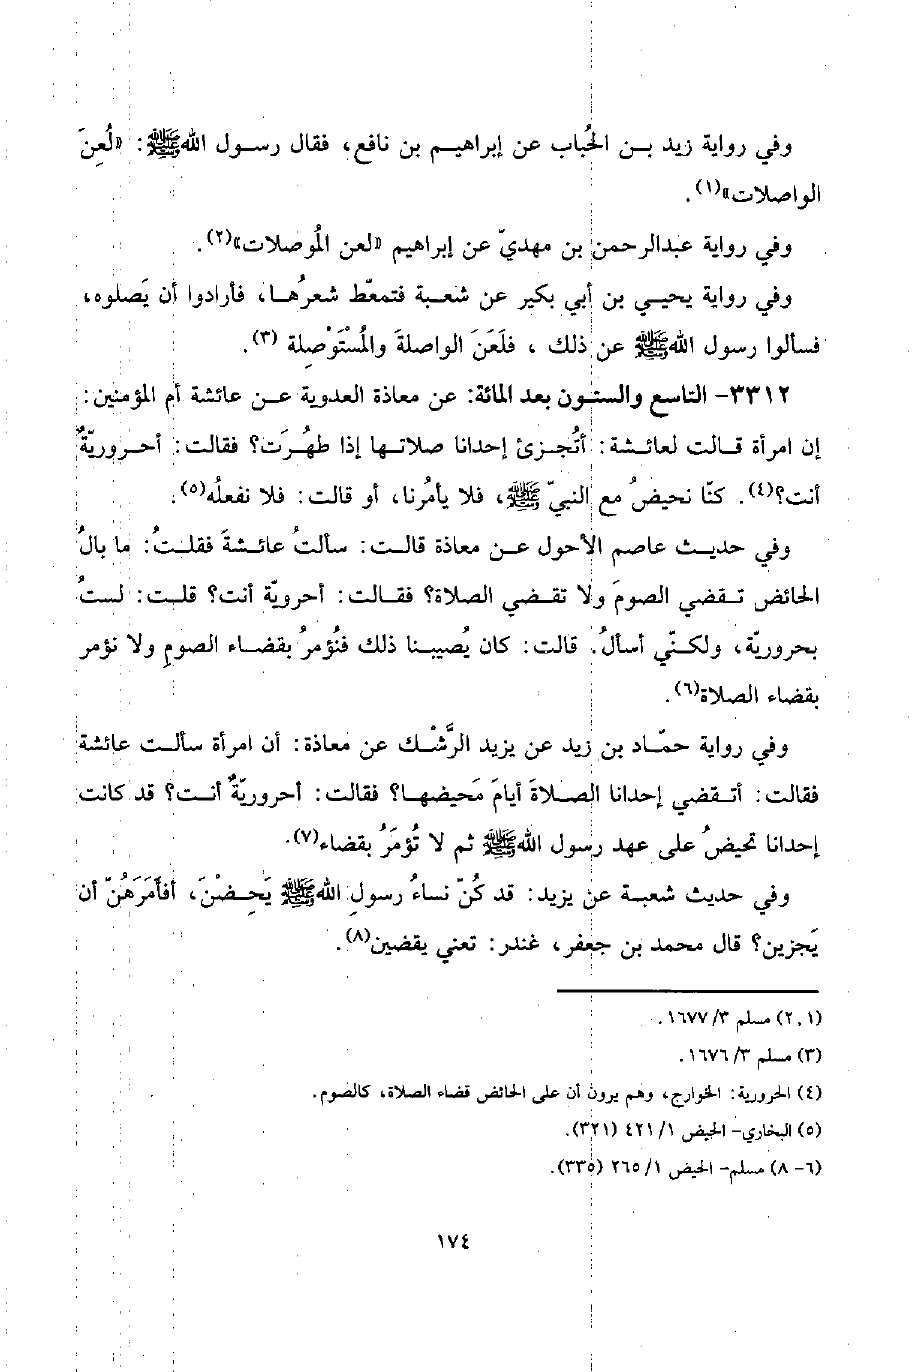 وفي رواية زيد بـن الحُباب عن إبراهيـم بن نافع، فقال رسـول اللهﷺ: «لُعِنَ
الواصلات»(١).
وفي رواية عبدالرحمن بن مهديّ عن إبراهيم «لعن المُوصلات»(٢).
وفي رواية يحيـى بن أبي بكير عن شعـبة فتمعّط شعرُهـا، فأرادوا أن يَصلوه،
فسألوا رسول اللهﷺ عن ذلك ، فلَعَنَ الواصلةَ والمُسْتَوْصِلة (٣).
٣٣١٢- التاسع والستـون بعد المائة: عن معاذة العدوية عـن عائشة أم المؤمنين:
إن امرأة قـالت لعائـشة: أتُجـزئ إحدانا صلاتـها إذا طهُرَت؟ فقالت: أحـروريّةٌ
أنت؟(٤). كنّا نحيضُ مع النبيّ ﷺ، فلا يأمُرنا، أو قالت: فلا نفعلُه(٥).
وفي حديـث عاصم الأحول عـن معاذة قالـت: سألتُ عائـشةَ فقلـتُ: ما بالُ
الحائض تـقضي الصومَ ولا تقـضي الصلاة؟ فقـالت: أحرويّة أنت؟ قلـت: لستُ
بحروريّة، ولكـنّي أسألُ. قالت: كان يُصيبـنا ذلك فنُؤمرُ بقضـاء الصومِ ولا نؤمر
بقضاء الصلاة(٦).
وفي رواية حمّـاد بن زيد عن يزيد الرِّشْـك عن معاذة: أن امرأة سألـت عائشة
فقالت: أتـقضي إحدانا الصـلاةَ أيامَ مَحيضهـا؟ فقالت: أحروريّةٌ أنـت؟ قد كانت
إحدانا تحيضُ على عهد رسول اللهﷺ ثم لا تُؤمَرُ بقضاء(٧).
وفي حديث شعبـة عن يزيد: قد كُنّ نساءُ رسولِ اللهﷺ يَحِـضْنَ، أفأَمَرَهُنّ أن
يَجزين؟ قال محمد بن جعفر، غندر: تعني يقضين(٨).
(١, ٢) مسلم ٣/ ١٦٧٧.
(٣) مسلم ٣/ ١٦٧٦.
(٤) الحرورية: الخوارج، وهم يرون أن على الحائض قضاء الصلاة، كالصوم.
(٥) البخاري- الحيض ١/ ٤٢١ (٣٢١).
(٦- ٨) مسلم- الحيض ١/ ٢٦٥ (٣٣٥).
١٧٤